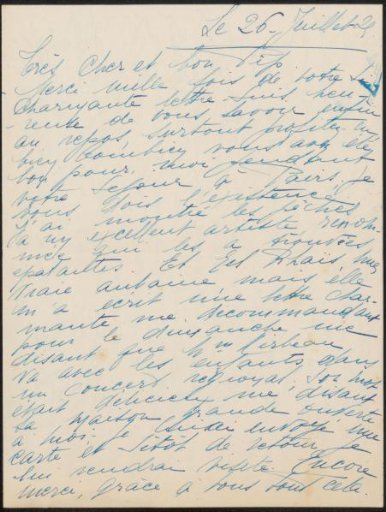 Le 26 Juillet
Très cher et bon Pip
Merci mille fois de votre si
charmante lettre suis heu-
reuse de vous savoir enfin
au repos, surtout profitez
combien vous avez été
bon pour moi pendant
votre séjour à Paris, je
vous dois l'existence,
J'ai montré les pêches
à un excellent artiste renom-
mée qui les a trouvées
épatantes. Et
vraie aubaine mais elle
m'a écrit une lettre char-
mante me recommandant
pour le dimanche me
disant que
va avec les enfants dans
un concert son mot
était délicieux me disant
sa maison grande ouverte
à moi envoyé une
carte et sitôt de retour je
lui rendrai visite. Encore
merci, grâce à vous tout cela.